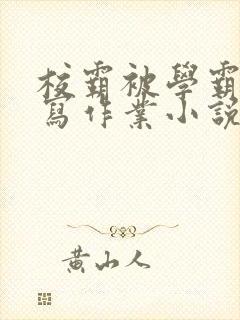 校霸被學霸
寫作業小說
黃山人